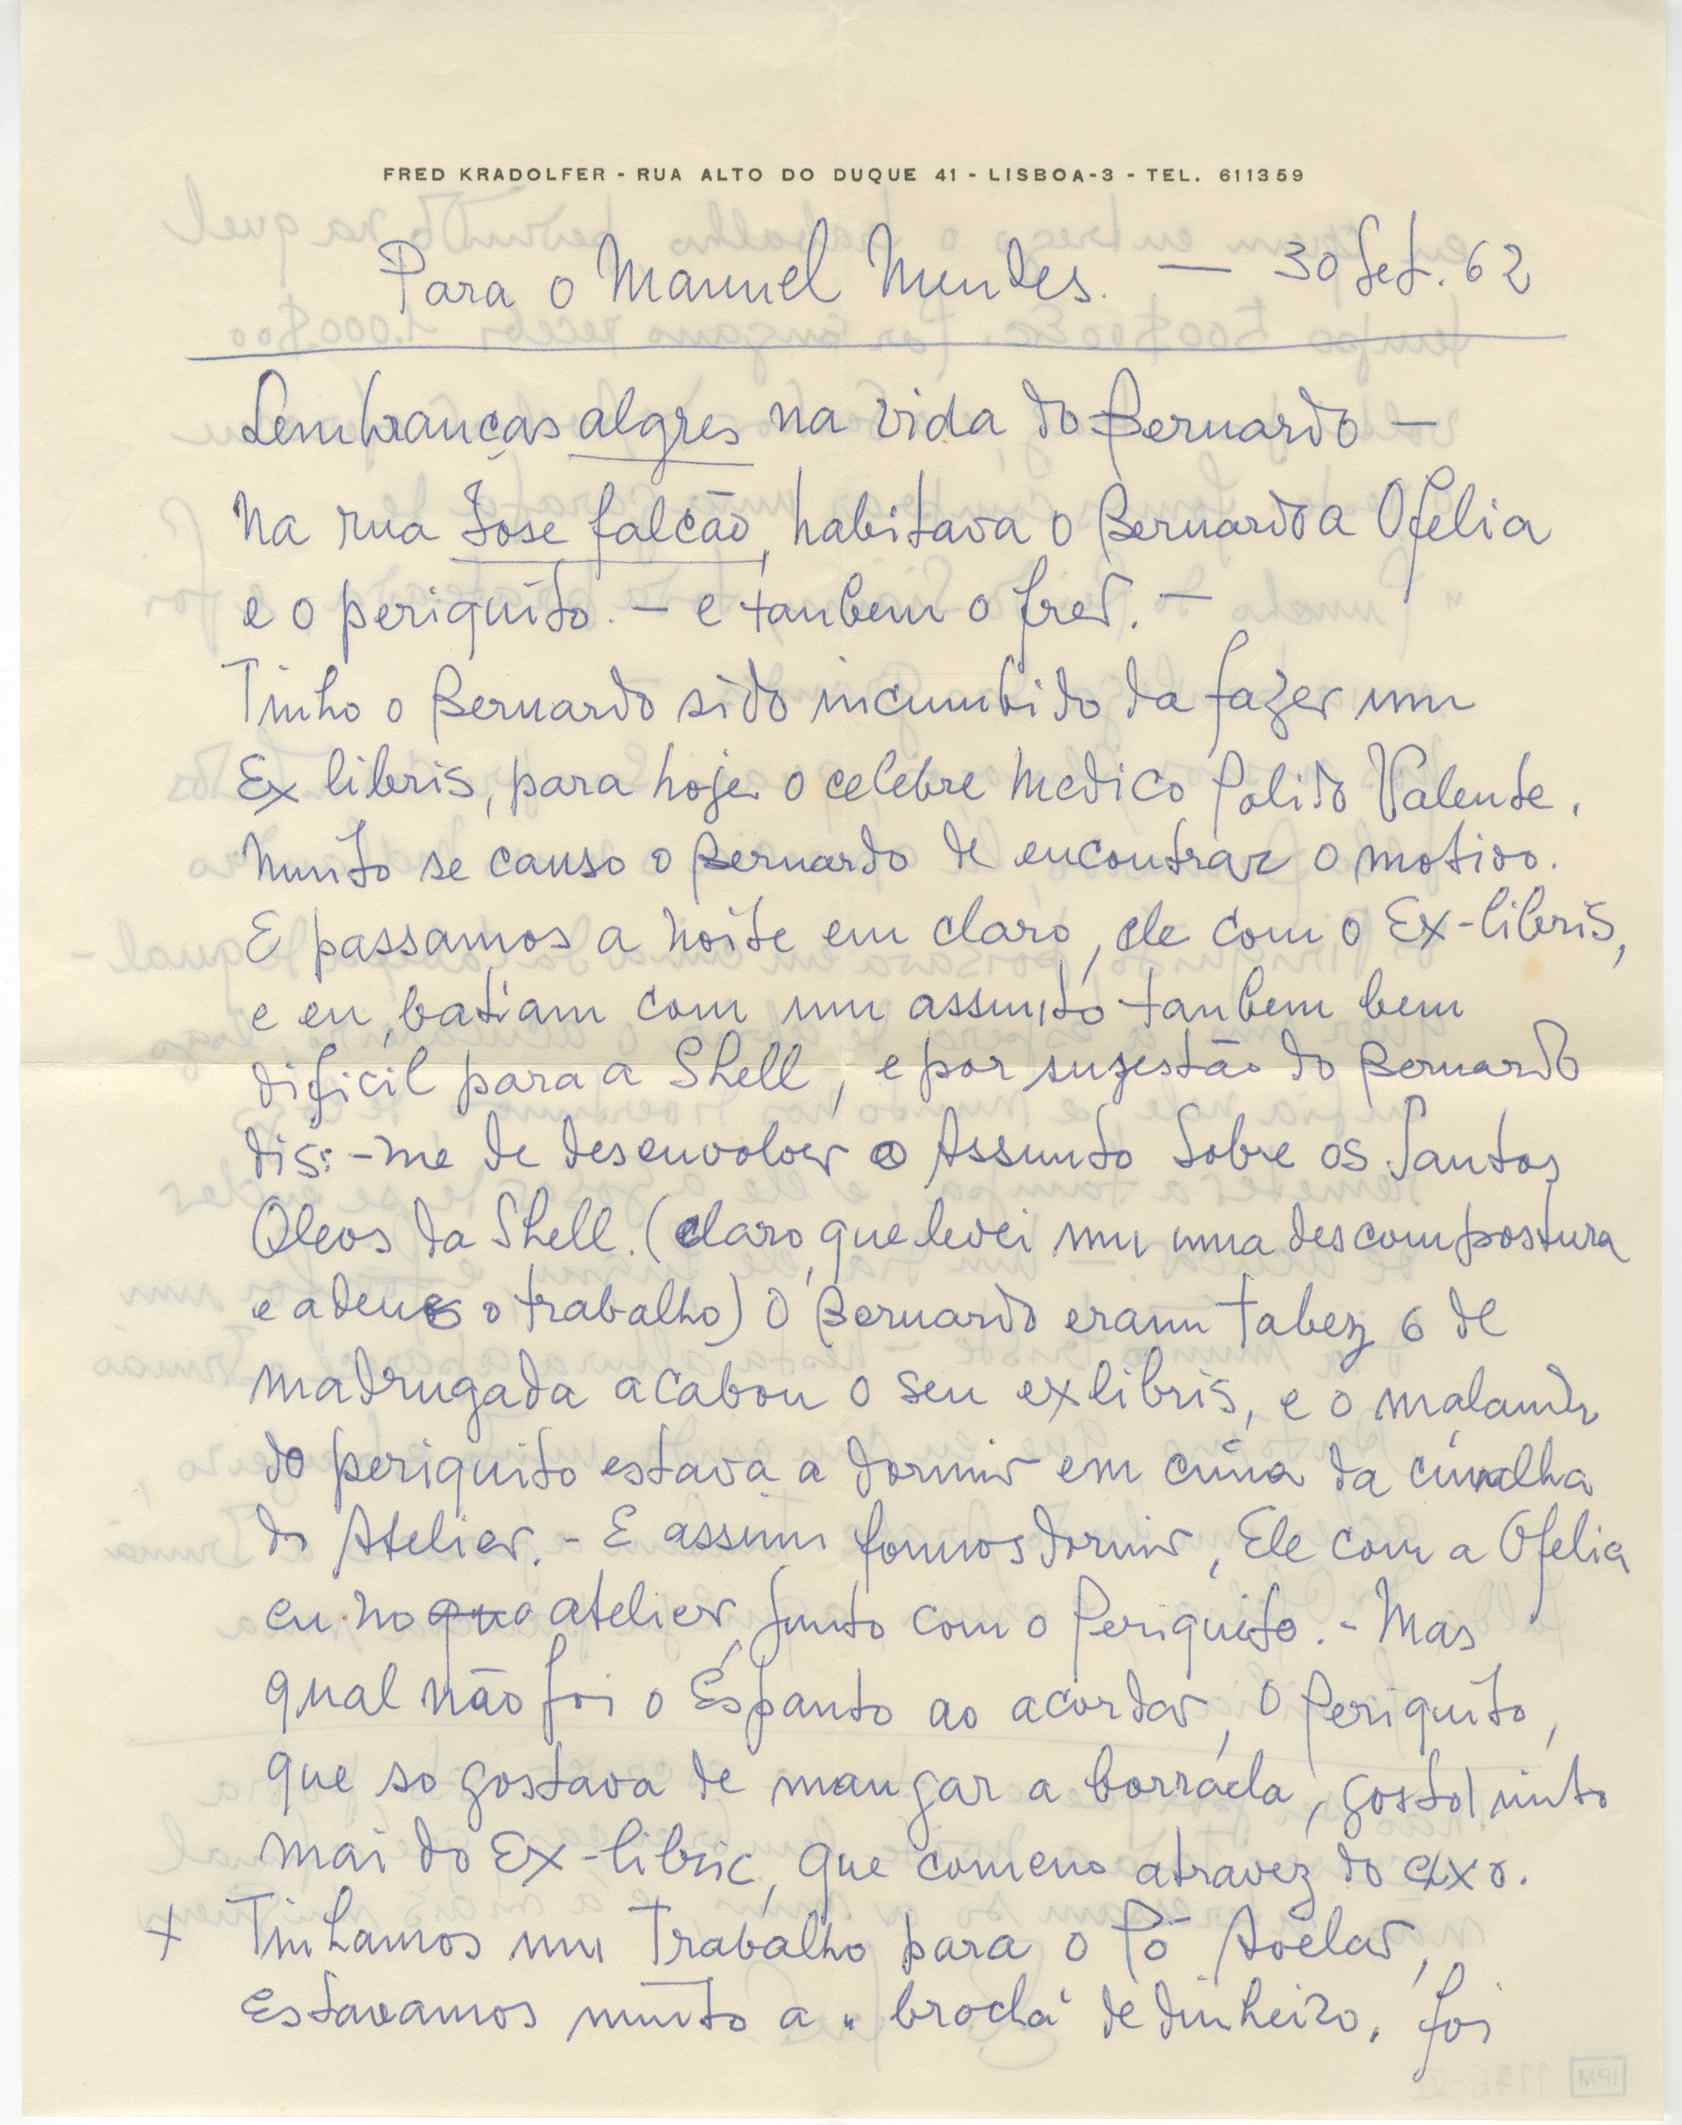 FRED KRADOLFER - RUA ALTO DO DUQUE 41 - LISBOA-3 - TEL. 611359
Para o Manuel Mendes. — 30 Set. 62
Lembranças algres na vida do Bernardo —
Na rua Jose falcão, habitava o Bernardo a Ofelia
e o periquito. — e tanbem o fred. —
Tinho o Bernardo sido incumbido da fazer um
Ex libris, para hoje o celebre medico Polido Valente.
Muito se canso o Bernardo de encontrar o motivo.
E passamos a noite em claro, ele com o Ex-libris,
e eu, batiam com um assunto tanbem bem
dificil para a Shell, e por sugestão do Bernardo
dis:-me de desenvolver o Assunto Sobre os Santos
Oleos da Shell. (claro, que levei um uma descompostura
e adeus o trabalho) O Bernardo eram talvez 6 de
madrugada acabou o seu ex libris, e o malandr
do periquito estava a dormir em cima da cimalha
do Atelier. - E assim fomos dormir, Ele com a Ofelia
eu no quo atelier, junto com o Periquito. - Mas
qual não foi o Espanto ao acordar, O Periquito,
que so gostava de mangar a borracha, gosto muito
mai do Ex-libric, que comeno atravez do eixo.
+ Tinhamos um Trabalho para o Pó Avelar,
Estavamos muito a " brocha" de dinheiro, foi